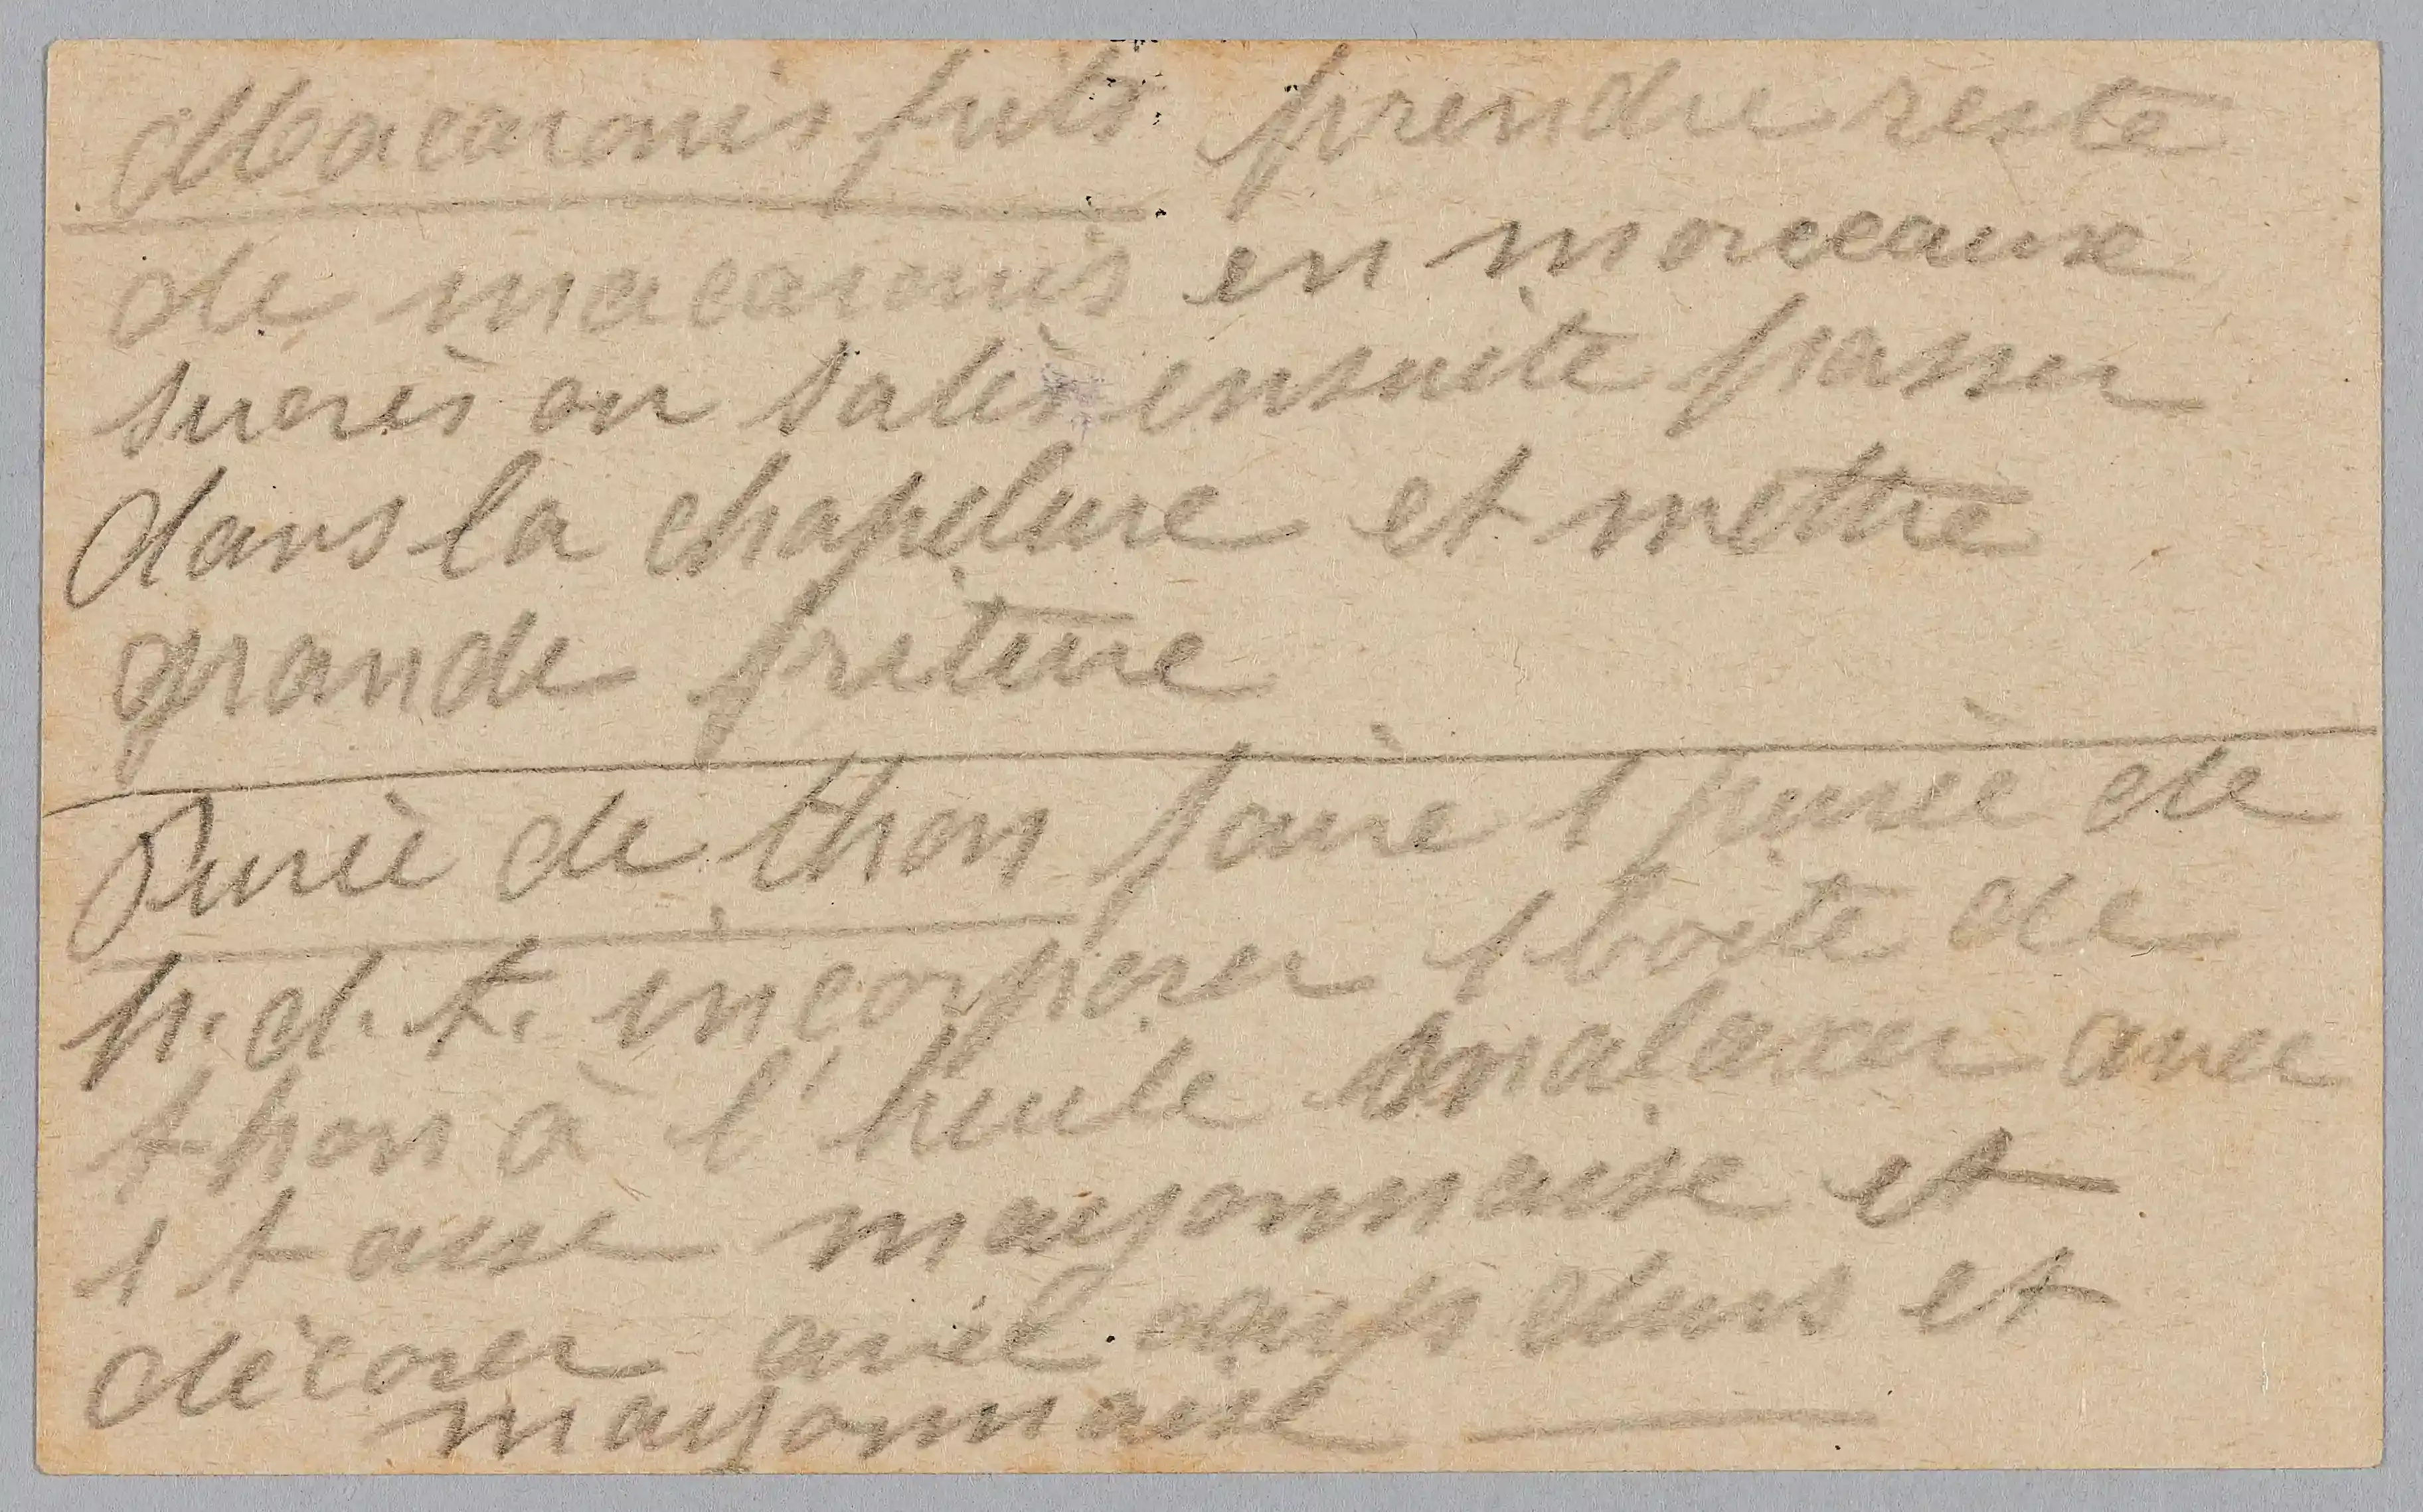 Macaronis frits prendre reste
de macaronis en morceaux
sucrès ou salès ensuite passer
dans la chapelure et mettre
grande friture
Purèe de thon faire 1 purèe de
p. d. t. incorporer 1 boite de
thon à l'huile malaxer avec
1 tasse mayonnaise et
dècorer avec oeufs durs et
mayonnaise